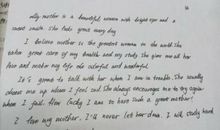 My mother is a beautiful woman with bright eyes and a
sweet smile. She looks great every day.
I believe mother is the greatest woman in the world. She
takes great care of my health and my study. She gives me all her
love and makes my life colorful and wonderful.
It's great to talk with her when I am in trouble. She usually
cheers me up when I feel sad. She always encourages me to try again
when I fail. How lucky I am to have such a great mother!
I love my mother. I'll never let her down. I will study hard